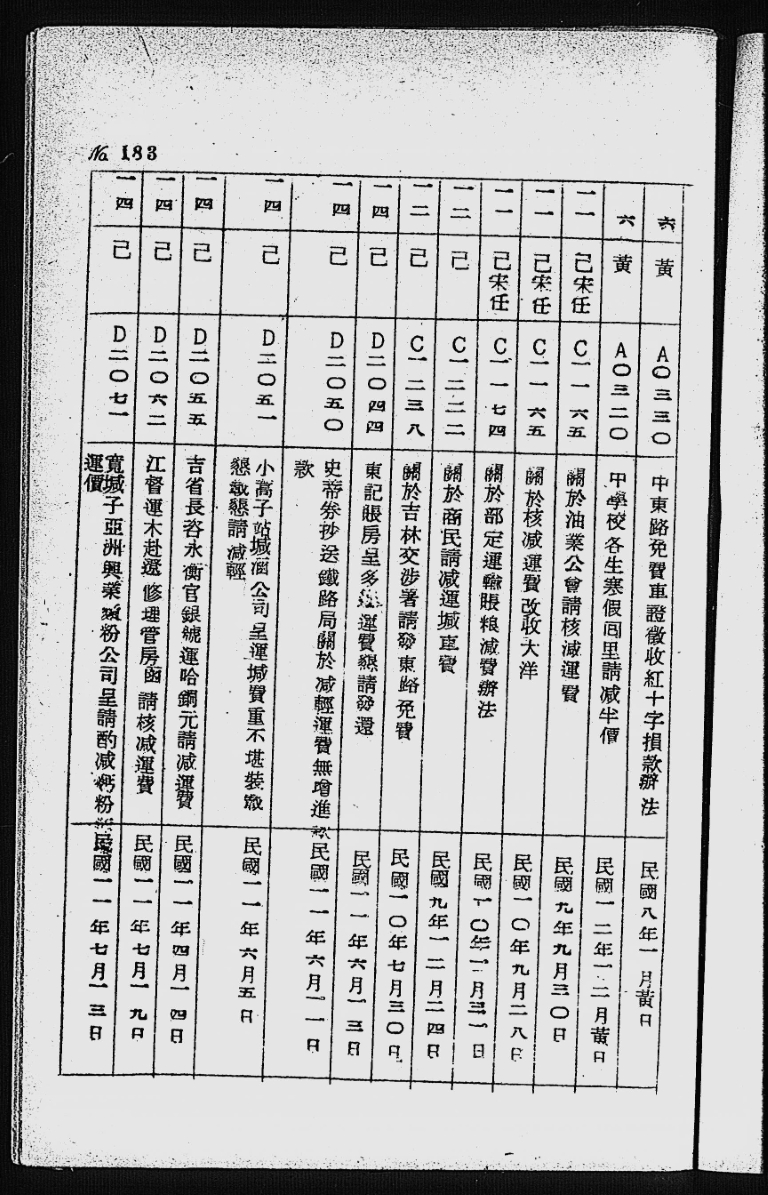 No. 183
六 黃 A〇三三〇 中東路免費車證徵收紅十字捐款辦法 民國八年一月黃日
六 黃 A〇三二〇 甲學校各生寒假回里請减半價 民國一二年一二月黃日
一一 己宋任 C一一六五 關於油業公會請核减運費 民國九年九月三〇日
一一 己宋任 C一一六五 關於核减運費改收大洋 民國一〇年九月二八日
一一 己宋任 C一一七四 關於部定運輸賬粮减費辦法 民國一〇年一二月三一日
一二 己 C一二二二 關於商民請减運堿車費 民國九年一二月二四日
一二 己 C一二三八 關於吉林交涉署請發東路免費 民國一〇年七月三〇日
一四 己 D二〇四四 東記賬房呈多運費懇請發還 民國一一年六月一三日
一四 己 D二〇五〇 史蒂劵抄送鐵路局關於减輕運費無增進款
款 民國一一年六月一一日
一四 己 D二〇五一 小蒿子站堿滷公司呈運堿費重不堪裝
懇請减輕 民國一一年六月五日
一四 己 D二〇五五 吉省長咨永衡官銀號運哈銅元請减運費 民國一一年四月一四日
一四 己 D二〇六二 江督運木赴 修理管房函請核减運費 民國一一年七月一九日
一四 己 D二〇七一 寬城子亞洲興業 粉公司呈請酌减 粉
運價 民國一一年七月一三日